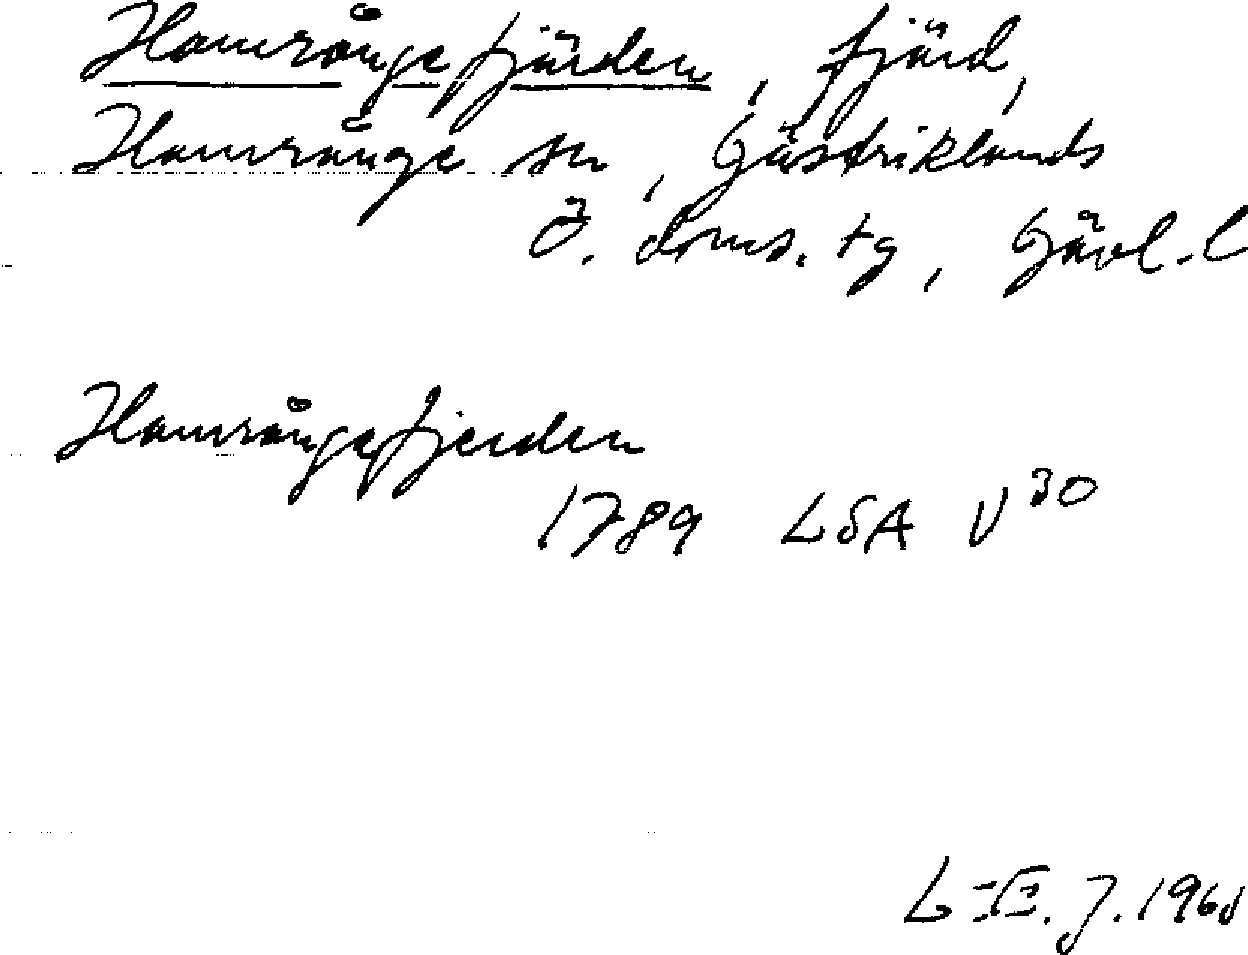 Hamrångefjärden, fjärd,
Hamrånge sn, Gästriklands
Ö. doms. tg, Gävl. l
Hamrångefjerden
1789 LSA V 30
L-E. J. 196